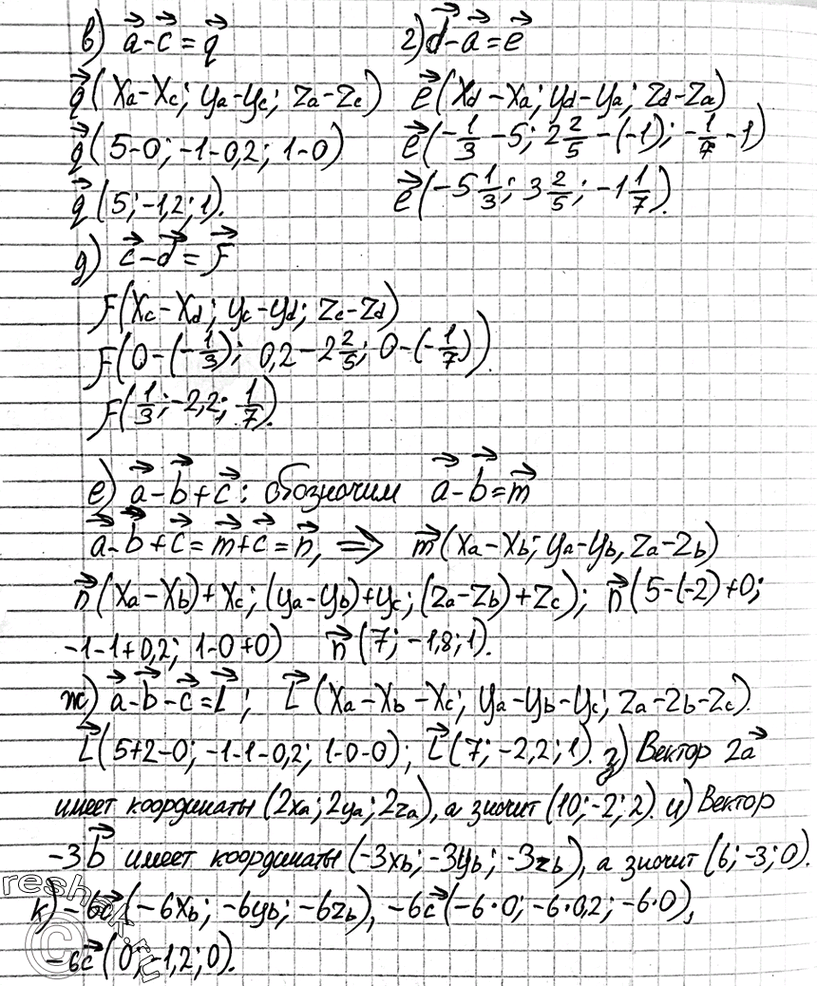 в) a⃗-c⃗=q⃗
г) d⃗-a⃗=e⃗
q⃗(xa-xc; ya-yc; za-zc)
e⃗(xd-xa; yd-ya; zd-za)
q⃗(5-0; -1-0,2; 1-0)
e⃗(-1/3-5; 2 2/5-(-1); -1/7-1)
q⃗(5; -1,2; 1).
e⃗(-5 1/3; 3 2/5; -1 1/7).
д) c⃗-d⃗=F⃗
F(xc-xd; yc-yd; zc-zd)
F(0-(-1/3); 0,2-2 2/5; 0-(-1/7)).
F(1/3; -2,2; 1/7).
е) a⃗-b⃗+c⃗: обозначим a⃗-b⃗=m⃗
a⃗-b⃗+c⃗=m⃗+c⃗=n⃗, ⇒ m⃗(xa-xb; ya-yb, za-zb)
n⃗(xa-xb)+xc; (ya-yb)+yc; (za-zb)+zc); n⃗(5-(-2)+0;
-1-1+0,2; 1-0+0) n⃗(7; -1,8; 1).
ж) a⃗-b⃗-c⃗=L⃗; L⃗(xa-xb-xc; ya-yb-yc; za-zb-zc).
L⃗(5+2-0; -1-1-0,2; 1-0-0); L⃗(7; -2,2; 1). з) Вектор 2a⃗
имеет координаты (2xa; 2ya; 2za), а значит (10; -2; 2). и) Вектор
-3b⃗ имеет координаты (-3xb; -3yb; -3zb), а значит (6; -3; 0).
к) -6c⃗(-6xb; -6yb; -6zb), -6c⃗(-6·0; -6·0,2; -6·0),
-6c⃗(0; -1,2; 0).